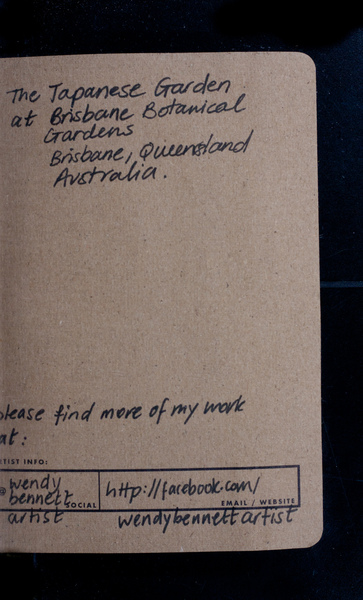 The Japanese Garden
at Brisbane Botanical
Gardens
Brisbane, Queensland
Australia.
please find more of my work
at:
TIST INFO:
@ wendy
bennett
artist
SOCIAL
http://facebook.com/
EMAIL / WEBSITE
wendybennettartist